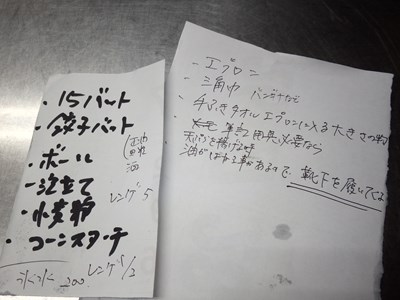 ・15バット
・餃子バット
・ボール
・泡立て
・小麦粉
・コーンスターチ
酒
レンゲ 5
レンゲ 1/2
氷水 200
- エプロン
- 三角巾 バンダナなど
- 手ふきタオル エプロンに入る大きさの物
筆記用具 必要なら
天ぷらを揚げる時
油がはねる事があるので 靴下を履いて